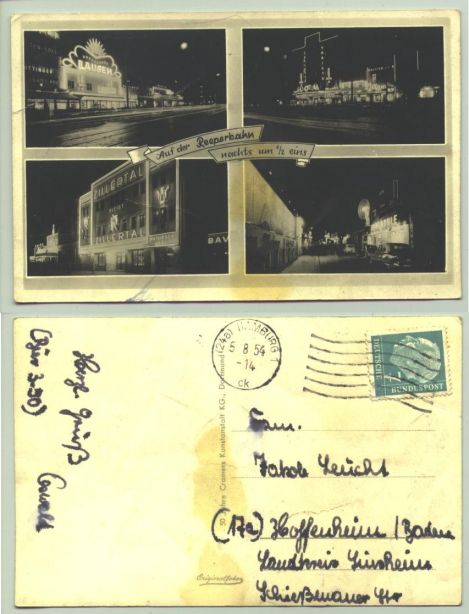 LAUSEN
Auf der Reeperbahn
nachts um ½ eins
ZILLERTAL
ZILLERTAL
BAV
(24a) HAMBURG 1
5 8 54
-14
ck
BUNDESPOST
50 Jahre Cramers Kunstanstalt KG., Dortmund
Originalfoto
Herzl. Grüße
Fam.
Jakob Leucht
(17a) Hoffenheim / Baden
Landkreis Sinsheim
Schießmauer Str